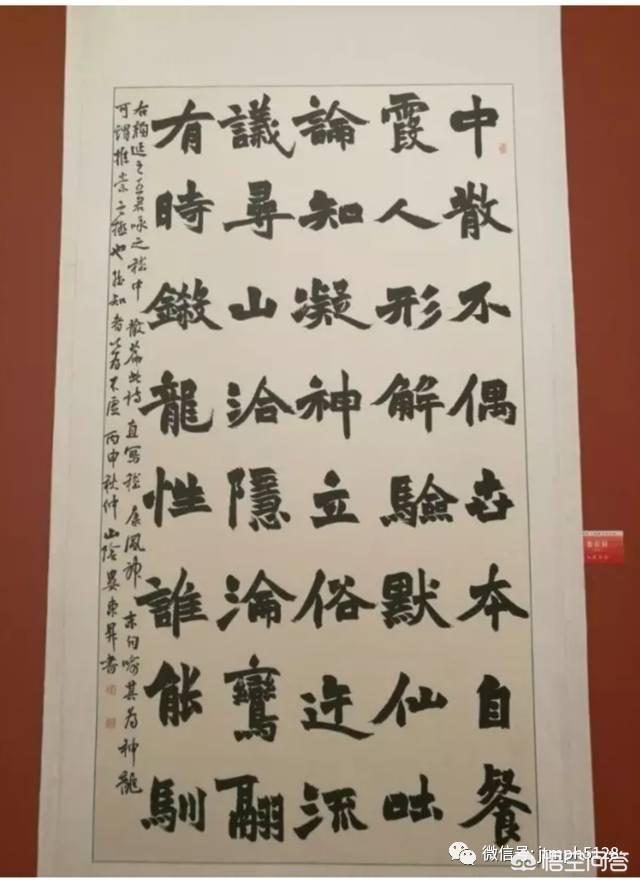 中散不偶世本自餐
霞人形解驗默仙吐
論知凝神立俗迕流
議尋山洽隱淪鸞翮
有時鎩龍性誰能馴
右顏延之五君咏之嵇中散篇此詩直寫嵇康風神末句喻其為神龍
可謂推崇之極也知者以為不虛丙申秋仲山陰婁東昇書
微信号: jtmph5128
悟空问答